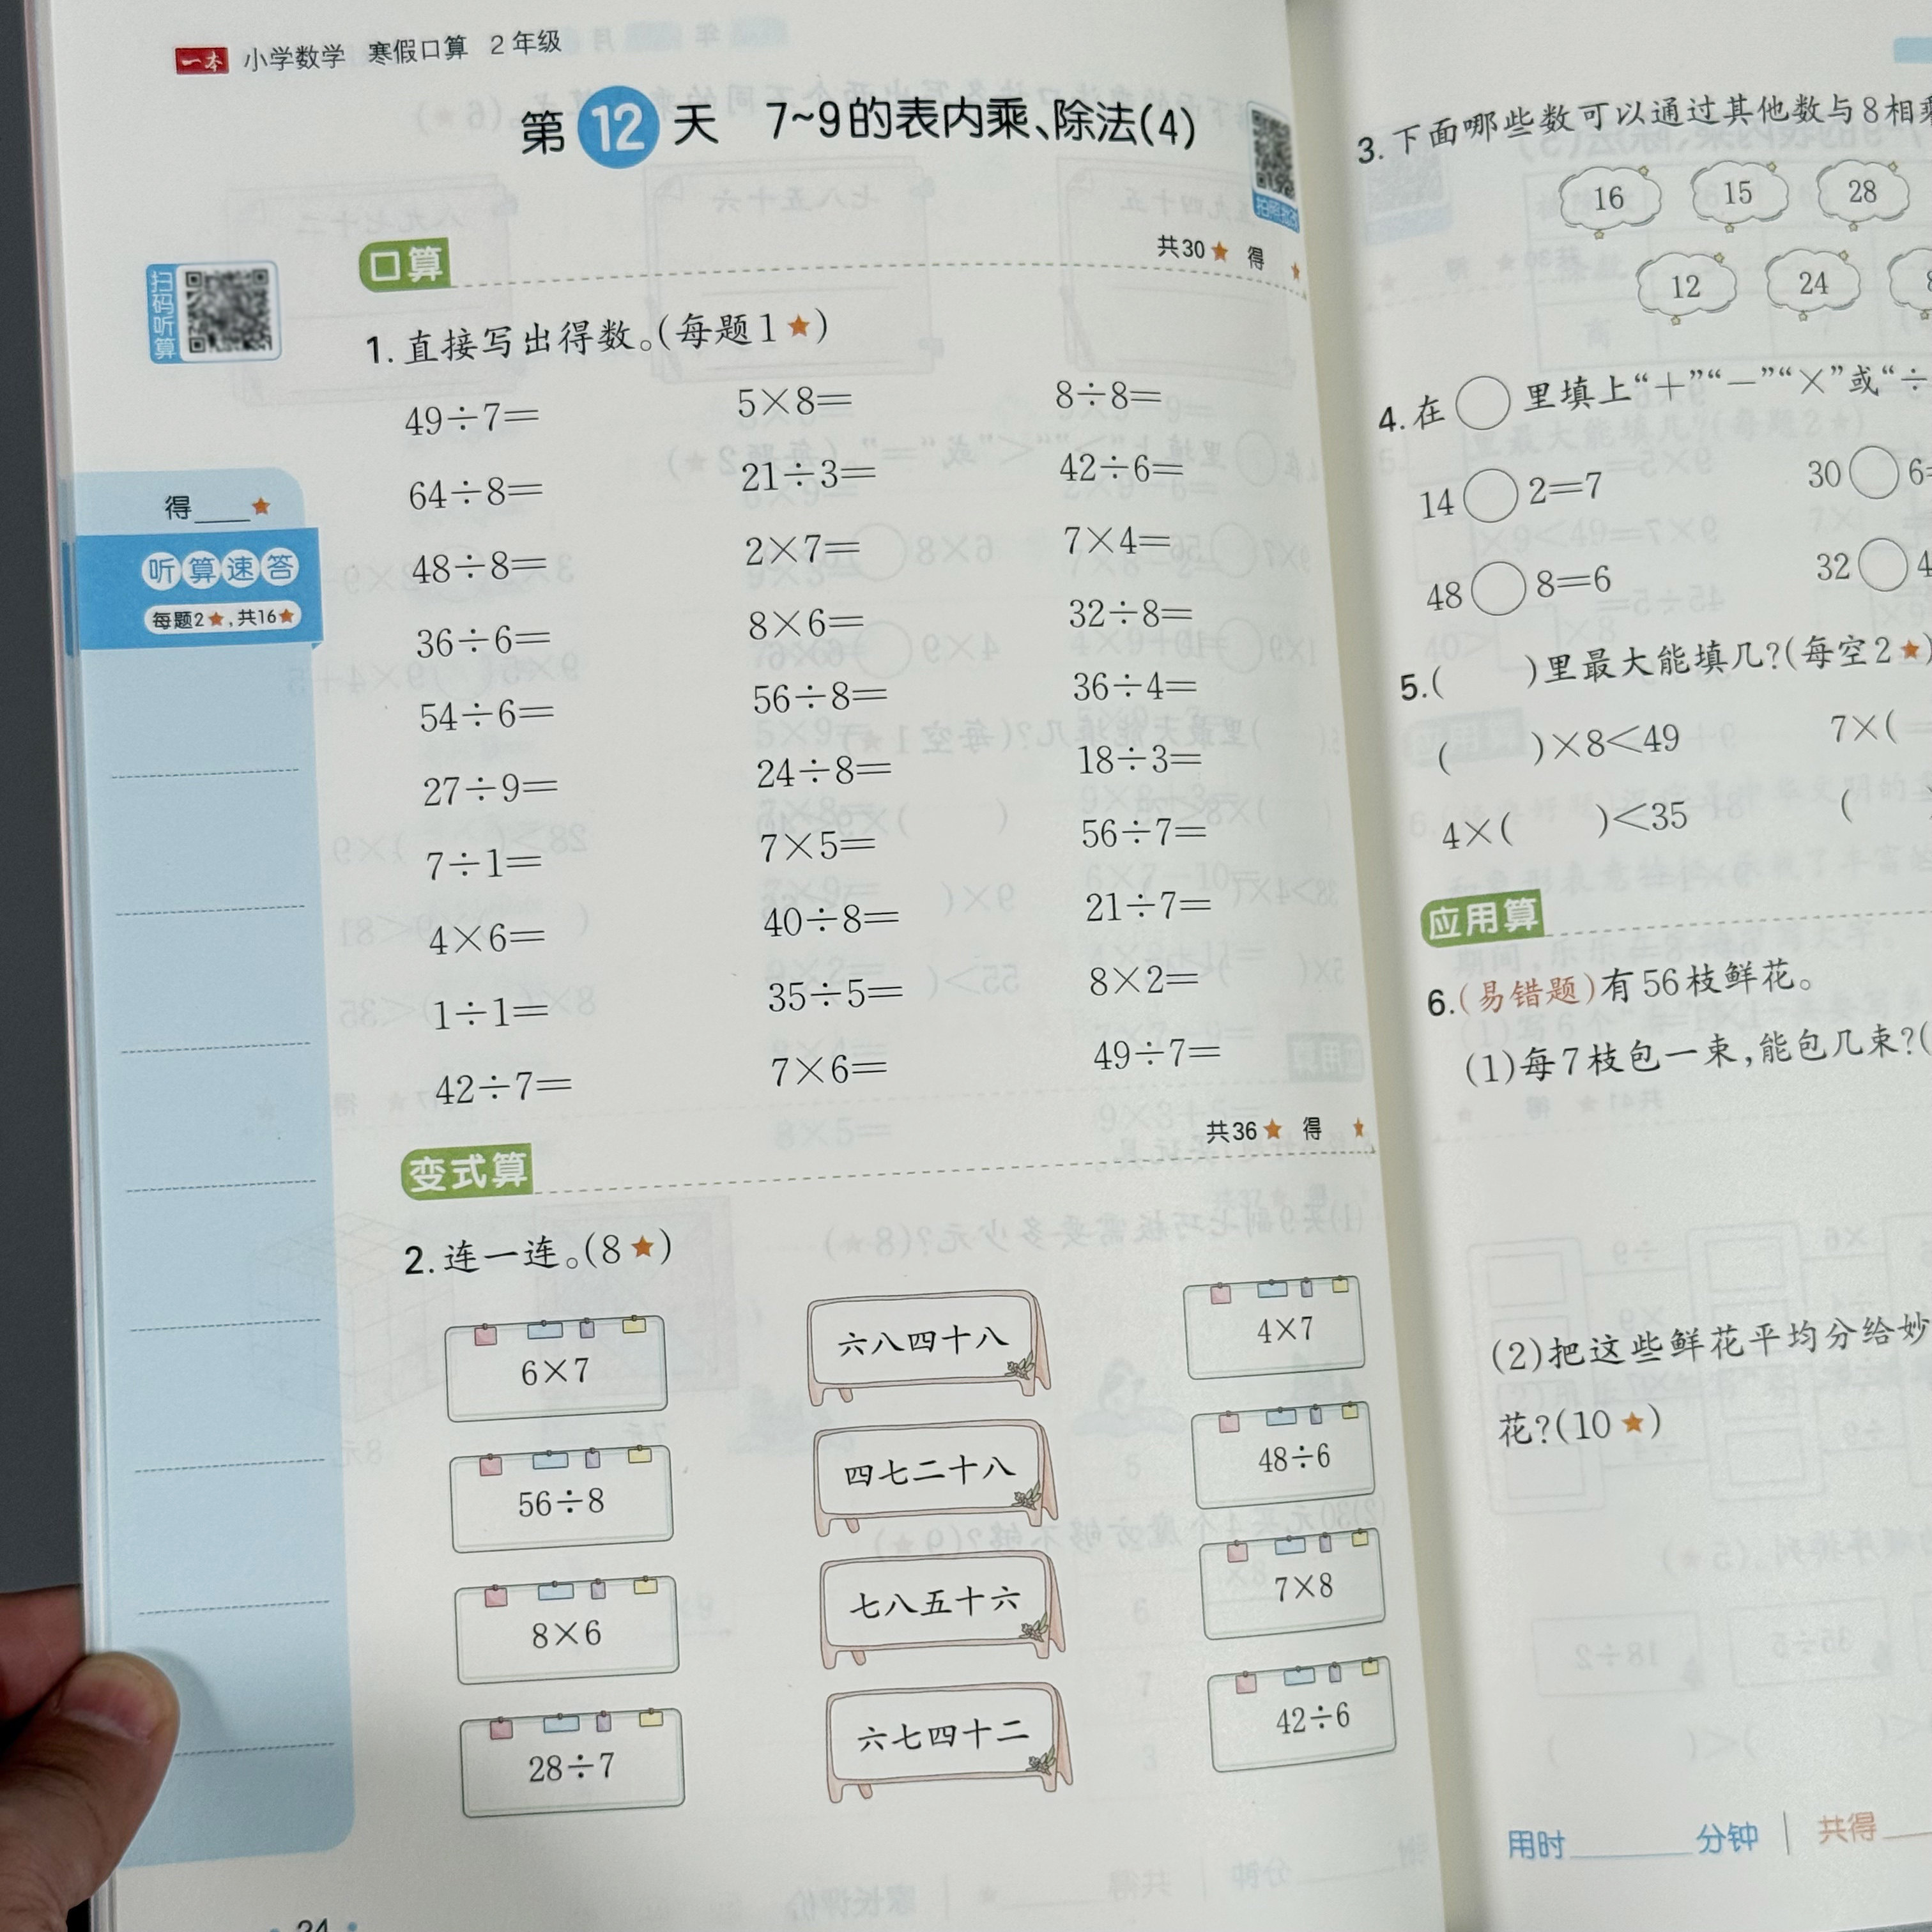 一本 小学数学 寒假口算 2年级
第12天 7~9的表内乘、除法(4)
扫码听算
口算
共30★ 得 ★
1.直接写出得数。(每题1★)
49÷7= 5×8= 8÷8=
64÷8= 21÷3= 42÷6=
48÷8= 2×7= 7×4=
36÷6= 8×6= 32÷8=
54÷6= 56÷8= 36÷4=
27÷9= 24÷8= 18÷3=
7÷1= 7×5= 56÷7=
4×6= 40÷8= 21÷7=
1÷1= 35÷5= 8×2=
42÷7= 7×6= 49÷7=
得____★
听算速答
每题2★,共16★
变式算
共36★ 得 ★
2.连一连。(8★)
6×7 六八四十八 4×7
56÷8 四七二十八 48÷6
8×6 七八五十六 7×8
28÷7 六七四十二 42÷6
24
3.下面哪些数可以通过其他数与8相乘
16 15 28
12 24
4.在○里填上“+”“-”“×”或“÷
14○2=7 30○6=
48○8=6 32○4
5.( )里最大能填几?(每空2★)
( )×8<49 7×(
4×( )<35 (
应用算
6.(易错题)有56枝鲜花。
(1)每7枝包一束,能包几束?(
(2)把这些鲜花平均分给妙
花?(10★)
用时____分钟 | 共得____